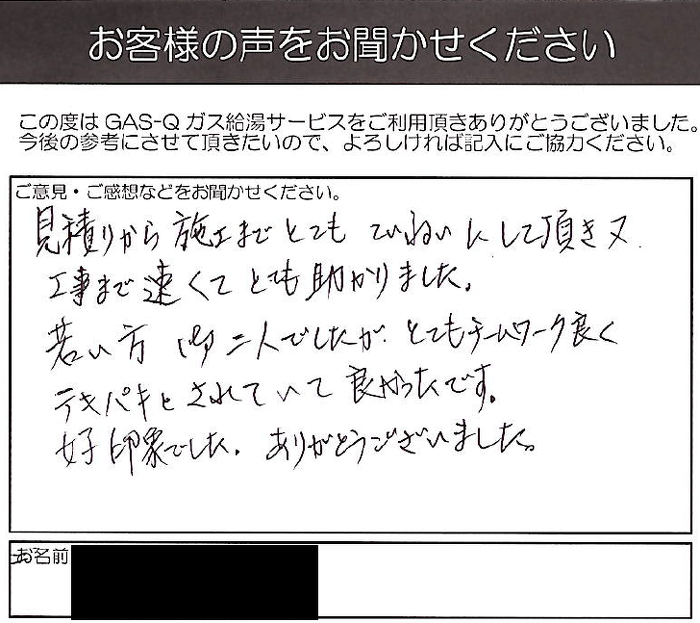 お客様の声をお聞かせください
この度は GAS-Q ガス給湯サービスをご利用頂きありがとうございました。
今後の参考にさせて頂きたいので、よろしければ記入にご協力ください。
ご意見・ご感想などをお聞かせください。
見積りから施工までとてもていねいにして頂き又
工事まで速くてとても助かりました。
若い方 お二人でしたが、とてもチームワーク良く
テキパキとされていて良かったです。
好印象でした。ありがとうございました。
お名前